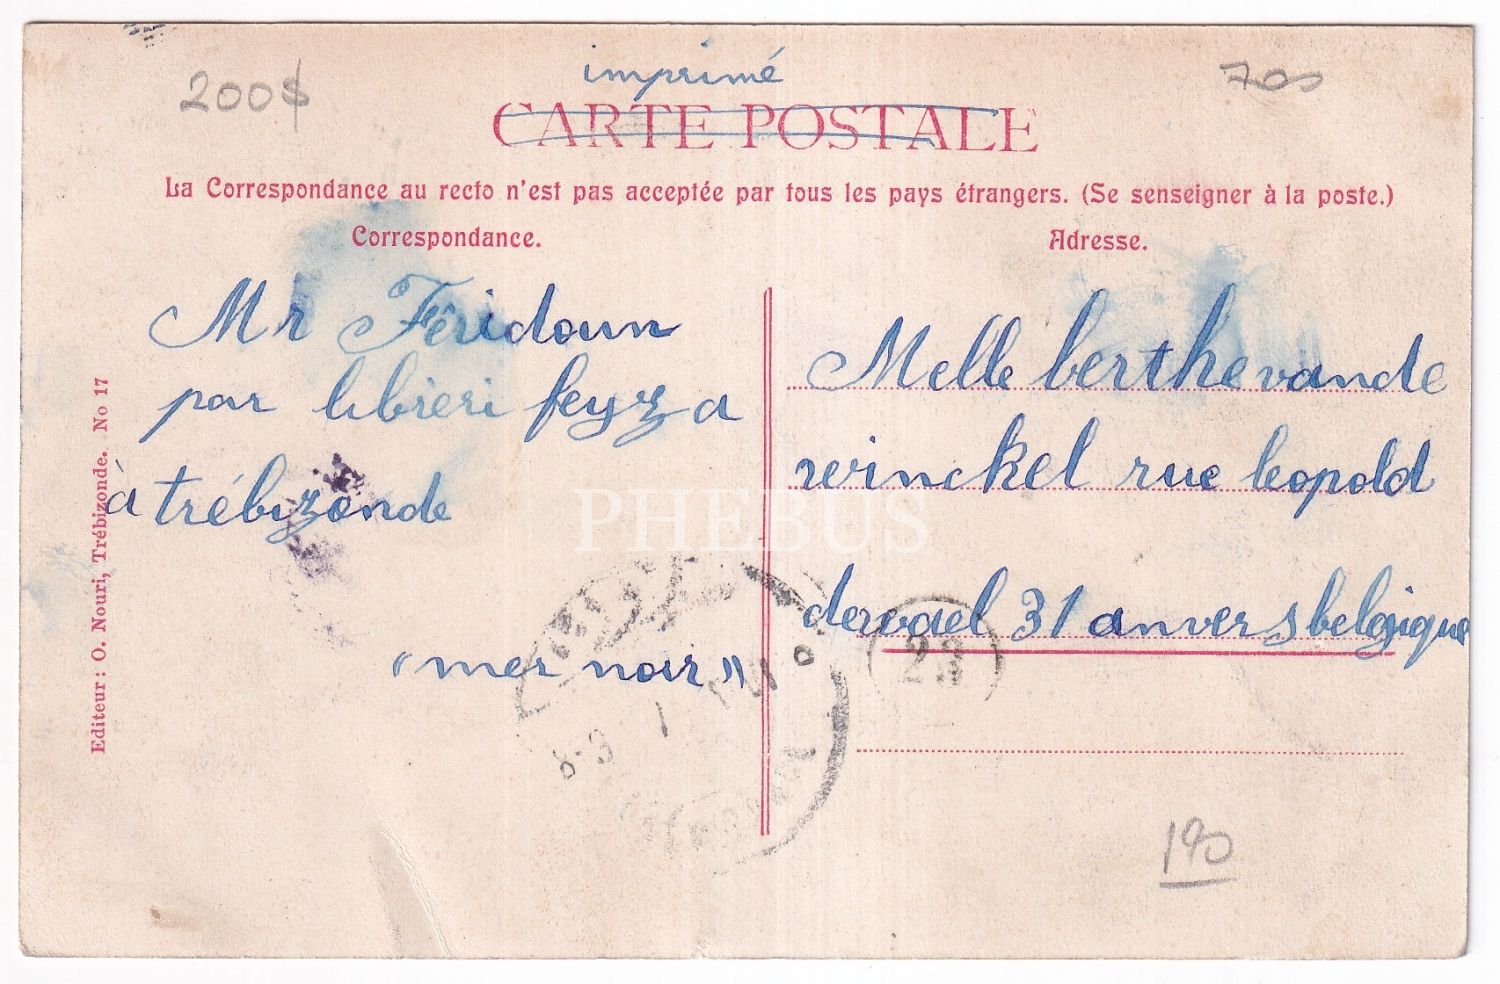 200$
imprimé
700
CARTE POSTALE
La Correspondance au recto n'est pas acceptée par tous les pays étrangers. (Se senseigner à la poste.)
Correspondance.
Adresse.
Mr Féridoun
par librèri feyz a
à trébizonde
"mer noir"
Melle berthe vande
winckel rue leopold
dewael 31 anvers belgique
23
8-9 1
190
Editeur: O. Nouri, Trébizonde. No 17
PHEBUS